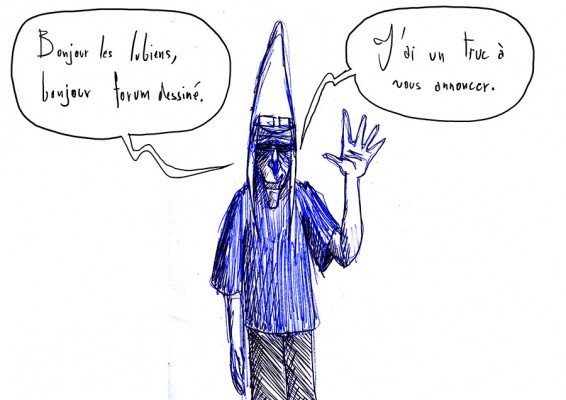 Bonjour les lubiens,
bonjour forum dessiné.
J'ai un truc à
vous annoncer.